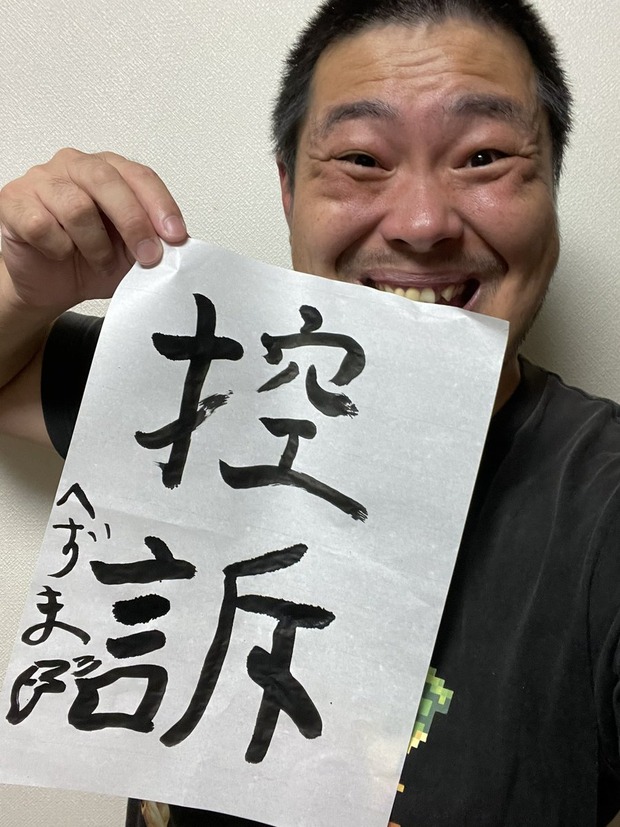 控訴
へずま